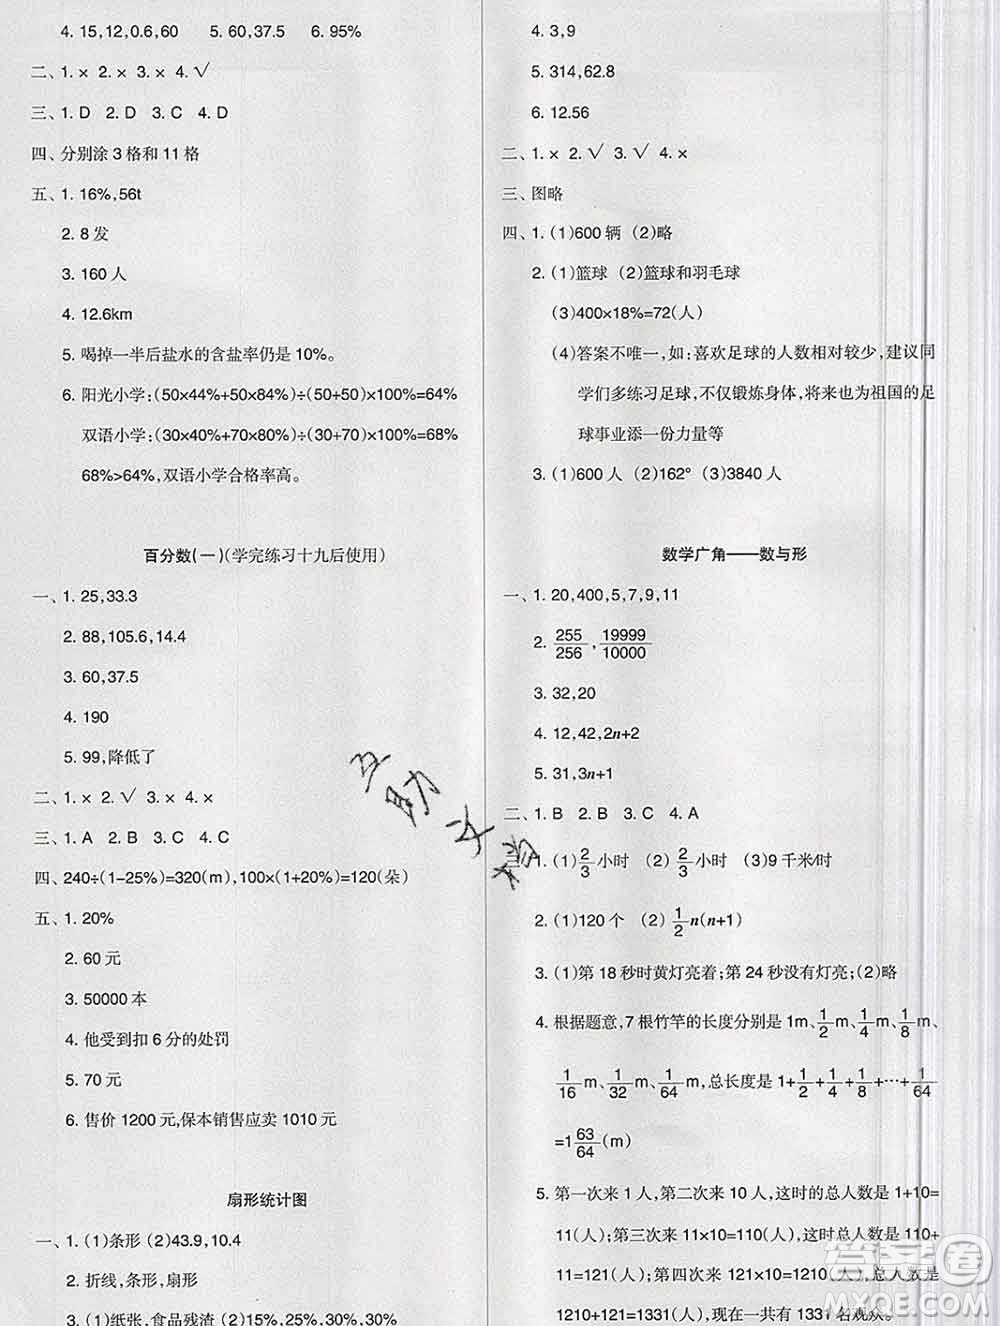 4. 15,12,0.6,60  5. 60,37.5  6. 95%
二、1. × 2. × 3. × 4. √
三、1. D  2. D  3. C  4. D
四、分别涂 3 格和 11 格
五、1. 16%,56t
2. 8 发
3. 160 人
4. 12.6km
5. 喝掉一半后盐水的含盐率仍是 10%。
6. 阳光小学:(50×44%+50×84%)÷(50+50)×100%=64%
双语小学:(30×40%+70×80%)÷(30+70)×100%=68%
68%>64%,双语小学合格率高。
百分数(一)(学完练习十九后使用)
一、1. 25,33.3
2. 88,105.6,14.4
3. 60,37.5
4. 190
5. 99,降低了
二、1. × 2. √ 3. × 4. ×
三、1. A  2. B  3. C  4. C
四、240÷(1-25%)=320(m),100×(1+20%)=120(朵)
五、1. 20%
2. 60 元
3. 50000 本
4. 他受到扣 6 分的处罚
5. 70 元
6. 售价 1200 元,保本销售应卖 1010 元
扇形统计图
一、1. (1)条形 (2)43.9,10.4
2. 折线,条形,扇形
3. (1)纸张,食品残渣 (2)15%,25%,30%,30%
4. 3,9
5. 314,62.8
6. 12.56
二、1. × 2. √ 3. √ 4. ×
三、图略
四、1. (1)600 辆 (2)略
2. (1)篮球 (2)篮球和羽毛球
(3)400×18%=72(人)
(4)答案不唯一,如:喜欢足球的人数相对较少,建议同
学们多练习足球,不仅锻炼身体,将来也为祖国的足
球事业添一份力量等
3. (1)600 人 (2)162° (3)3840 人
数学广角——数与形
一、1. 20,400,5,7,9,11
2. 255/256,19999/10000
3. 32,20
4. 12,42,2n+2
5. 31,3n+1
二、1. B  2. B  3. C  4. A
1. (1)2/3小时 (2)2/3小时 (3)9 千米/时
2. (1)120 个 (2)1/2n(n+1)
3. (1)第 18 秒时黄灯亮着;第 24 秒没有灯亮;(2)略
4. 根据题意,7 根竹竿的长度分别是 1m、1/2m、1/4m、1/8m、
1/16m、1/32m、1/64m,总长度是 1+1/2+1/4+1/8+…+1/64
=1 63/64(m)
5. 第一次来 1 人,第二次来 10 人,这时的总人数是 1+10=
11(人);第三次来 11×10=110(人),这时总人数是 110+
11=121(人);第四次来 121×10=1210(人),总人数是
1210+121=1331(人),现在一共有 1331 名观众。
互助文档
答案圈